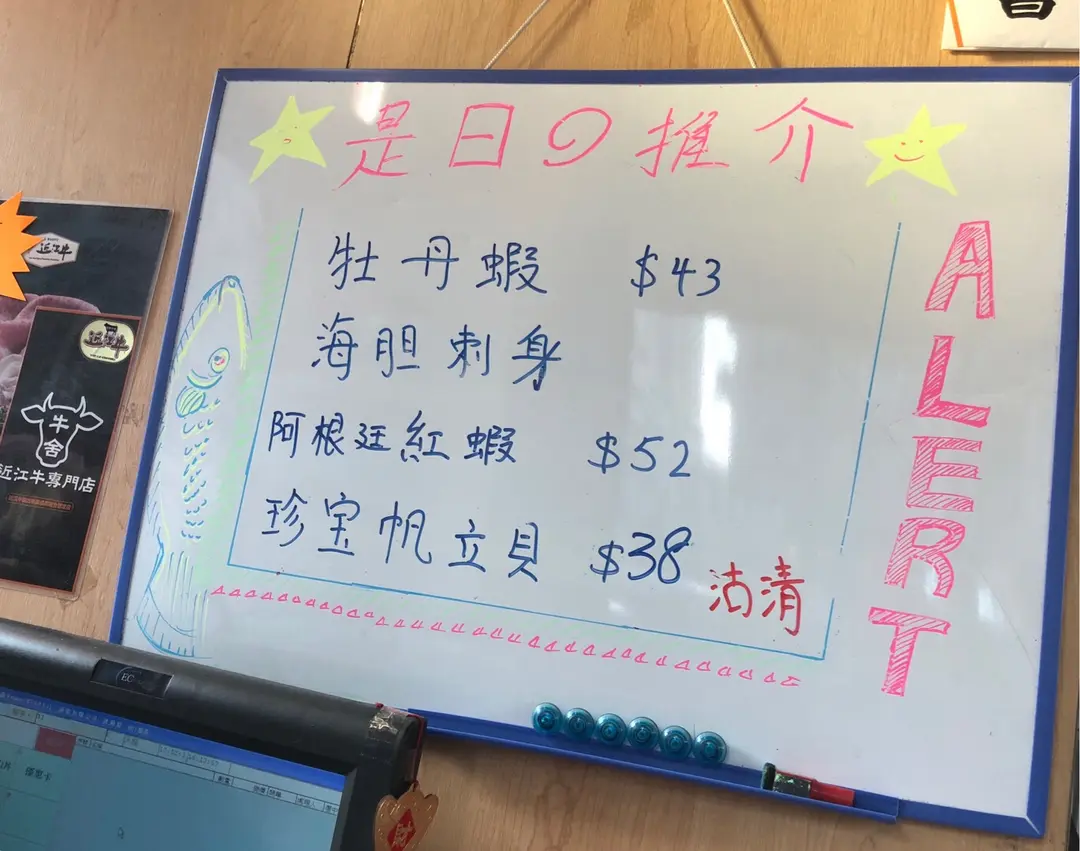 是日の推介
牡丹蝦 $43
海胆刺身
阿根廷紅蝦 $52
珍宝帆立貝 $38 沽清
ALERT
近江牛
近江牛
牛舍
近江牛專門店
EC
財